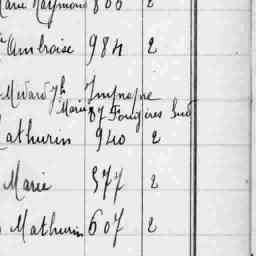 Marie Raymond 800 2
Ambroise 984 2
Medard Jh Impasse
Marie 87 Fougères Sud
Mathurin 940 2
Marie 577 2
Mathurin 607 2